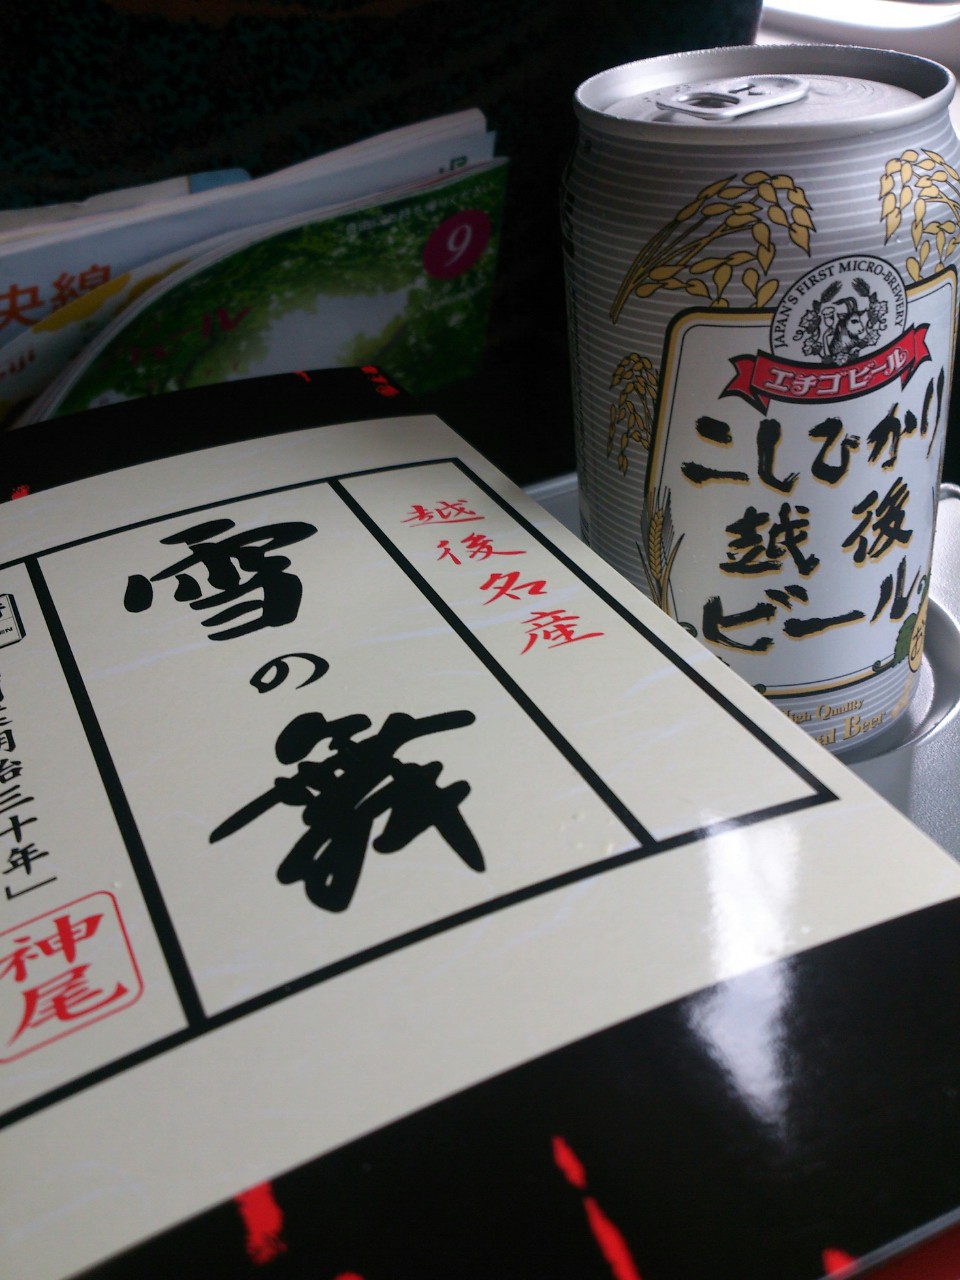 越後名産
雪の舞
明治三十年」
神尾
JAPAN'S FIRST MICRO-BREWERY
エチゴビール
こしひかり
越後
ビール
High Quality
Beer
9
央線